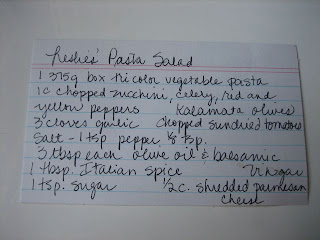 Leslie's Pasta Salad
1 375g box tricolor vegetable pasta
1 c chopped zucchini, celery, red and
yellow peppers Kalamata olives
3 cloves garlic chopped sundried tomatoes
Salt - 1 tsp pepper ½ tsp.
3 tbsp each olive oil & balsamic
1 tbsp. Italian Spice Vinegar
1 tsp. sugar ½ c. shredded parmesan
cheese